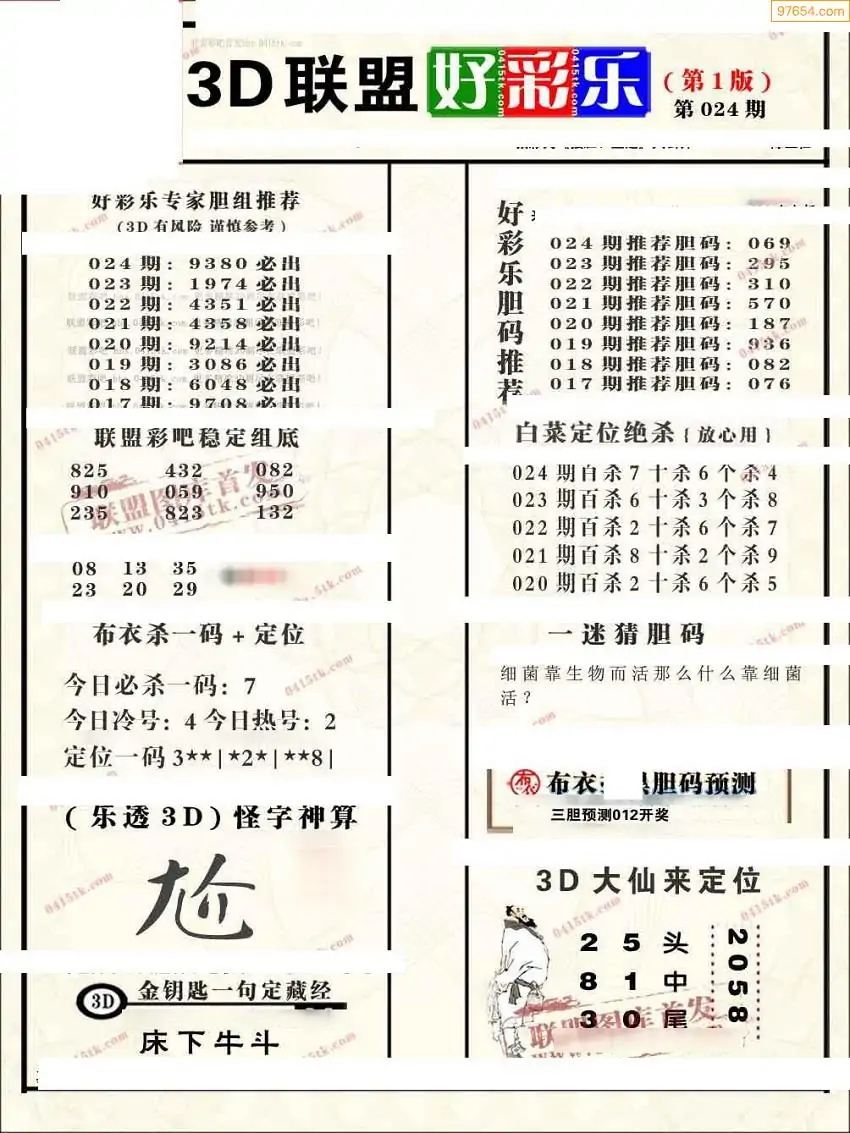 97654.com
3D联盟好彩乐
(第1版)
第024期
好彩乐专家胆组推荐
(3D有风险 谨慎参考)
024期: 9380必出
023期: 1974必出
022期: 4351必出
021期: 4358必出
020期: 9214必出
019期: 3086必出
018期: 6048必出
017期: 9708必出
联盟彩吧稳定组底
825 432 082
910 059 950
235 823 132
08 13 35
23 20 29
布衣杀一码+定位
今日必杀一码: 7
今日冷号: 4 今日热号: 2
定位一码3**|*2*|**8|
(乐透3D)怪字神算
尬
3D 金钥匙一句定藏经
床下牛斗
好彩乐胆码推荐
024期推荐胆码: 069
023期推荐胆码: 295
022期推荐胆码: 310
021期推荐胆码: 570
020期推荐胆码: 187
019期推荐胆码: 936
018期推荐胆码: 082
017期推荐胆码: 076
白菜定位绝杀{放心用}
024期百杀7十杀6个杀4
023期百杀6十杀3个杀8
022期百杀2十杀6个杀7
021期百杀8十杀2个杀9
020期百杀2十杀6个杀5
一迷猜胆码
细菌靠生物而活那么什么靠细菌
活?
布衣
胆码预测
三胆预测012开奖
3D大仙来定位
2 5 头
8 1 中
3 0 尾
2058
联盟图库首发
www.0415tk.com
0415tk.com